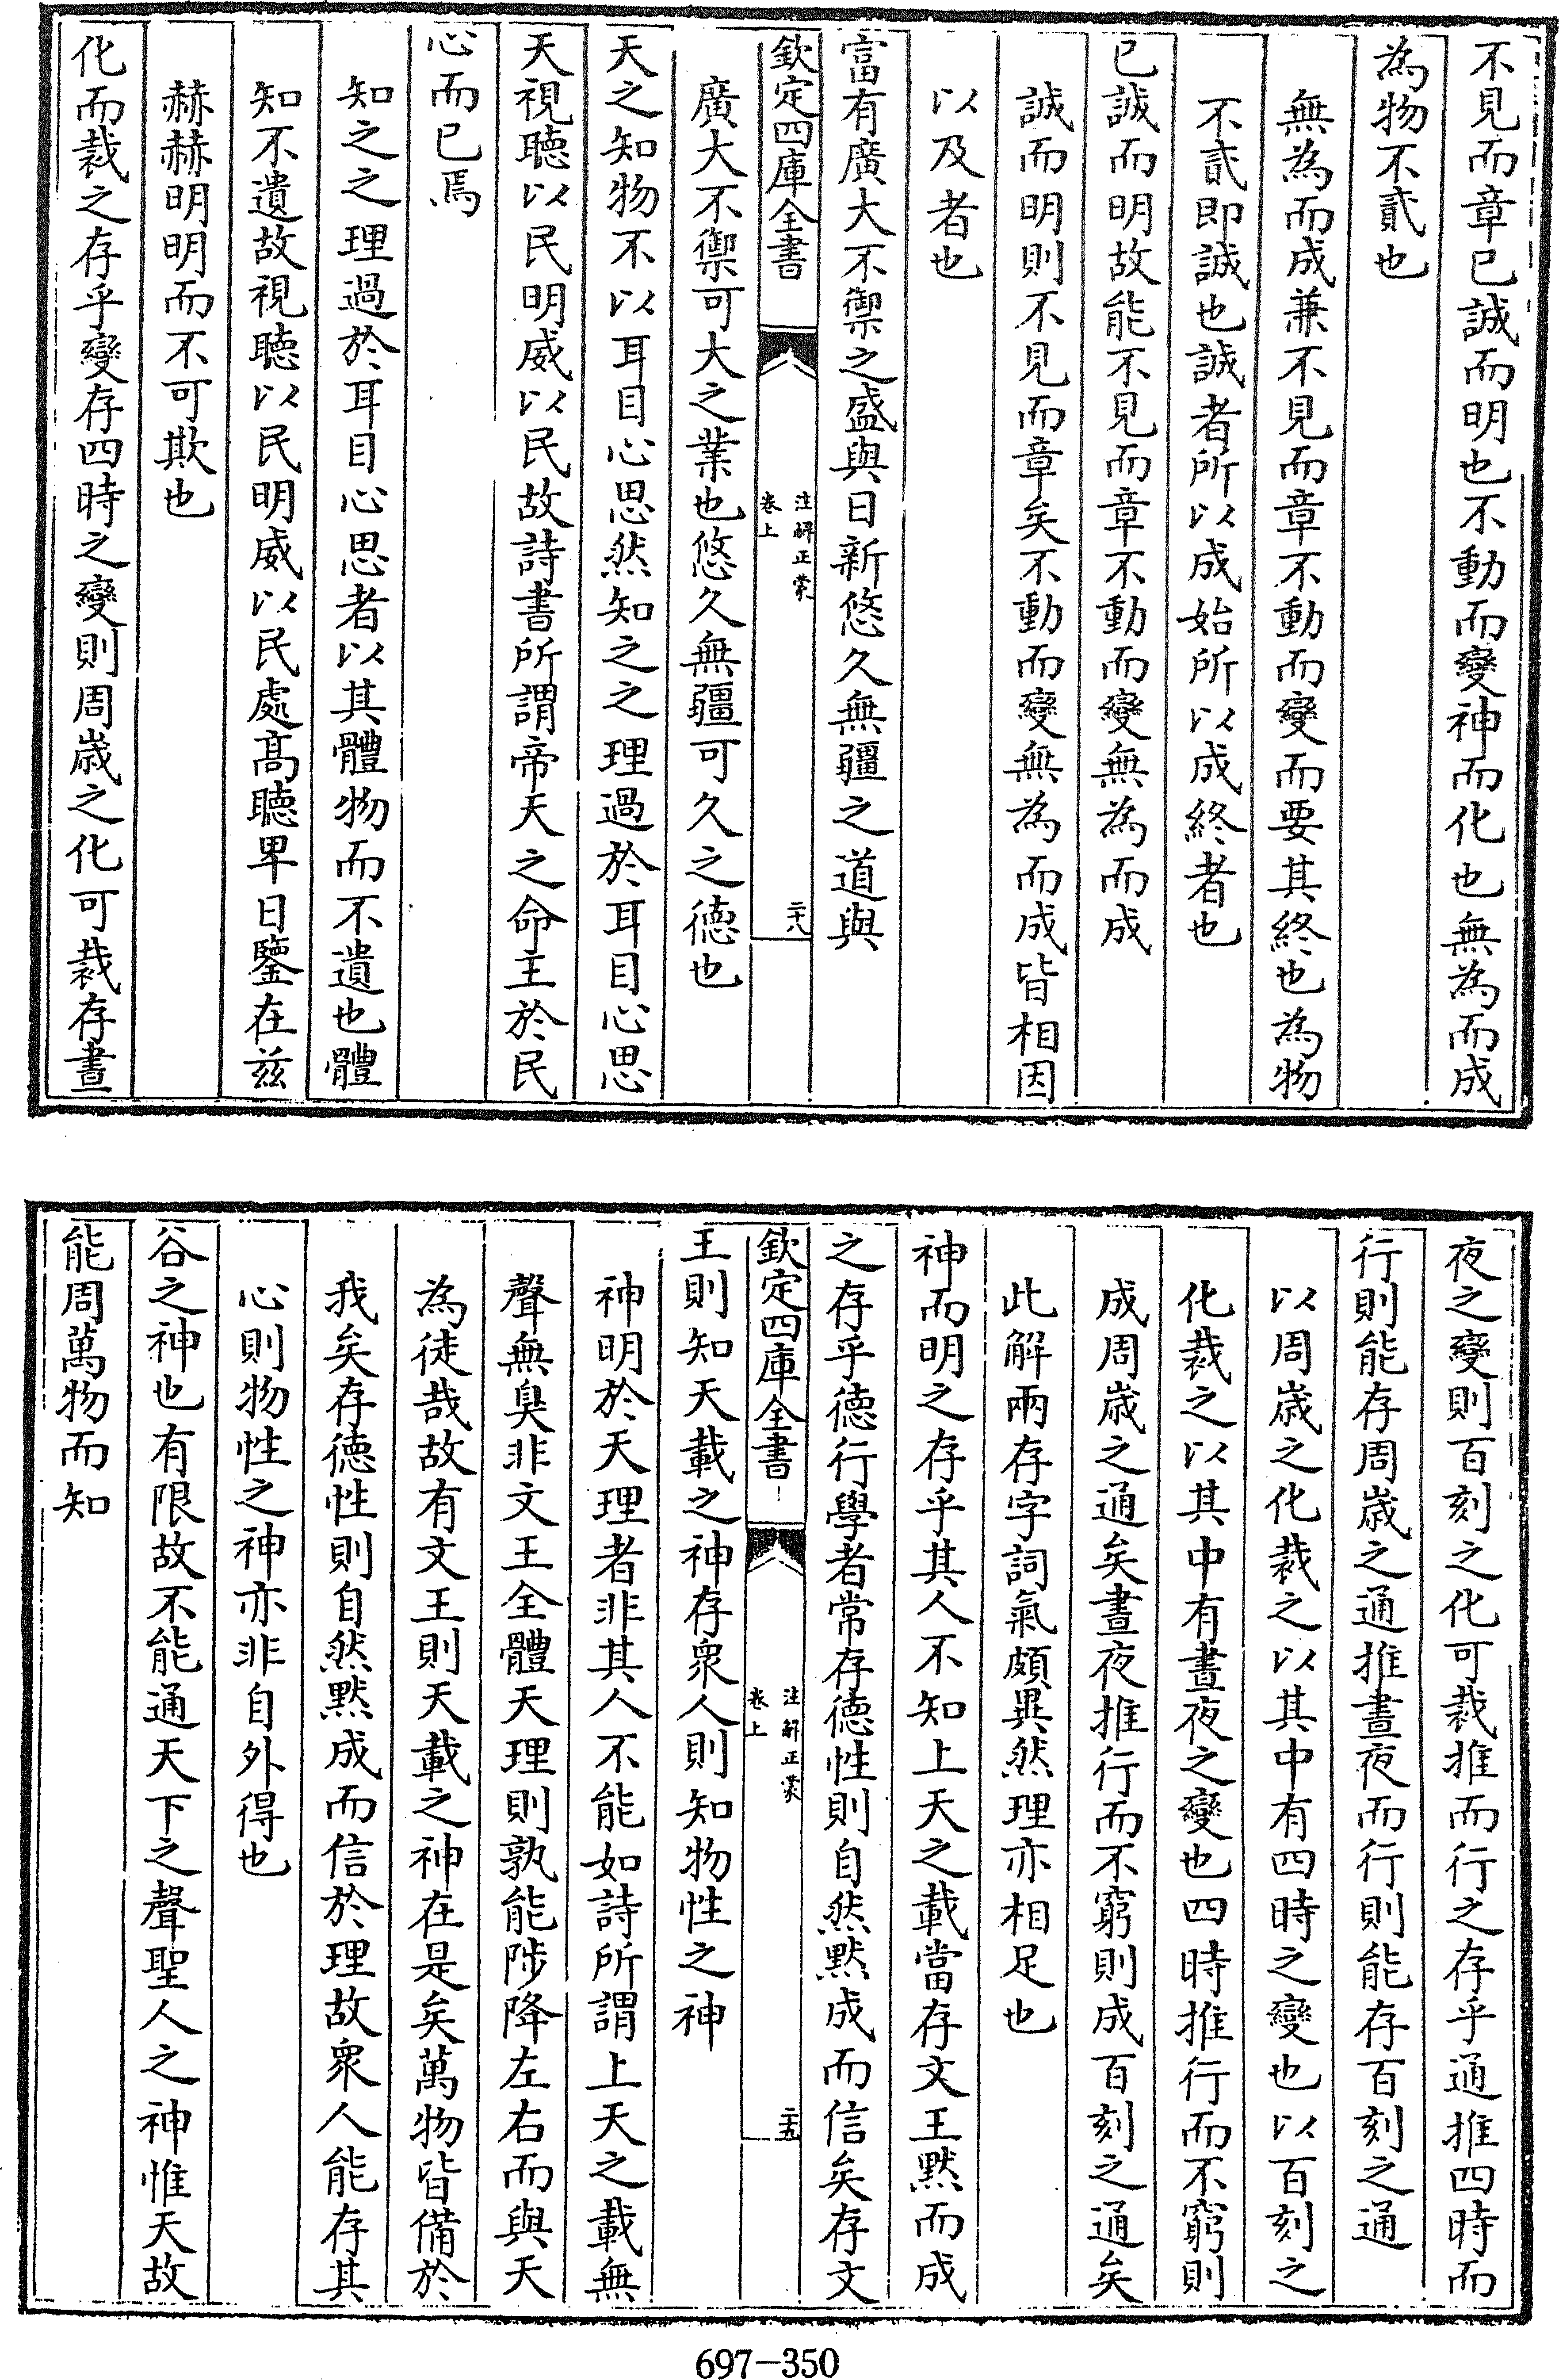 不見而章已誠而明也不動而變神而化也無為而成
為物不貳也
無為而成兼不見而章不動而變而要其終也為物
不貳即誠也誠者所以成始所以成終者也
已誠而明故能不見而章不動而變無為而成
誠而明則不見而章矣不動而變無為而成皆相因
以及者也
富有廣大不禦之盛與日新悠久無疆之道與
欽定四庫全書
注解正蒙
卷上
二十八
廣大不禦可大之業也悠久無疆可久之德也
天之知物不以耳目心思然知之之理過於耳目心思
天視聽以民明威以民故詩書所謂帝天之命主於民
心而已焉
知之之理過於耳目心思者以其體物而不遺也體
知不遺故視聽以民明威以民處高聽卑日鑒在兹
赫赫明明而不可欺也
化而裁之存乎變存四時之變則周歲之化可裁存晝
夜之變則百刻之化可裁推而行之存乎通推四時而
行則能存周歲之通推晝夜而行則能存百刻之通
以周歲之化裁之以其中有四時之變也以百刻之
化裁之以其中有晝夜之變也四時推行而不窮則
成周歲之通矣晝夜推行而不窮則成百刻之通矣
此解兩存字詞氣頗異然理亦相足也
神而明之存乎其人不知上天之載當存文王默而成
之存乎德行學者常存德性則自然默成而信矣存文
欽定四庫全書
注解正蒙
卷上
二十九
王則知天載之神存衆人則知物性之神
神明於天理者非其人不能如詩所謂上天之載無
聲無臭非文王全體天理則孰能陟降左右而與天
為徒哉故有文王則天載之神在是矣萬物皆備於
我矣存德性則自然默成而信於理故衆人能存其
心則物性之神亦非自外得也
谷之神也有限故不能通天下之聲聖人之神惟天故
能周萬物而知
697-350